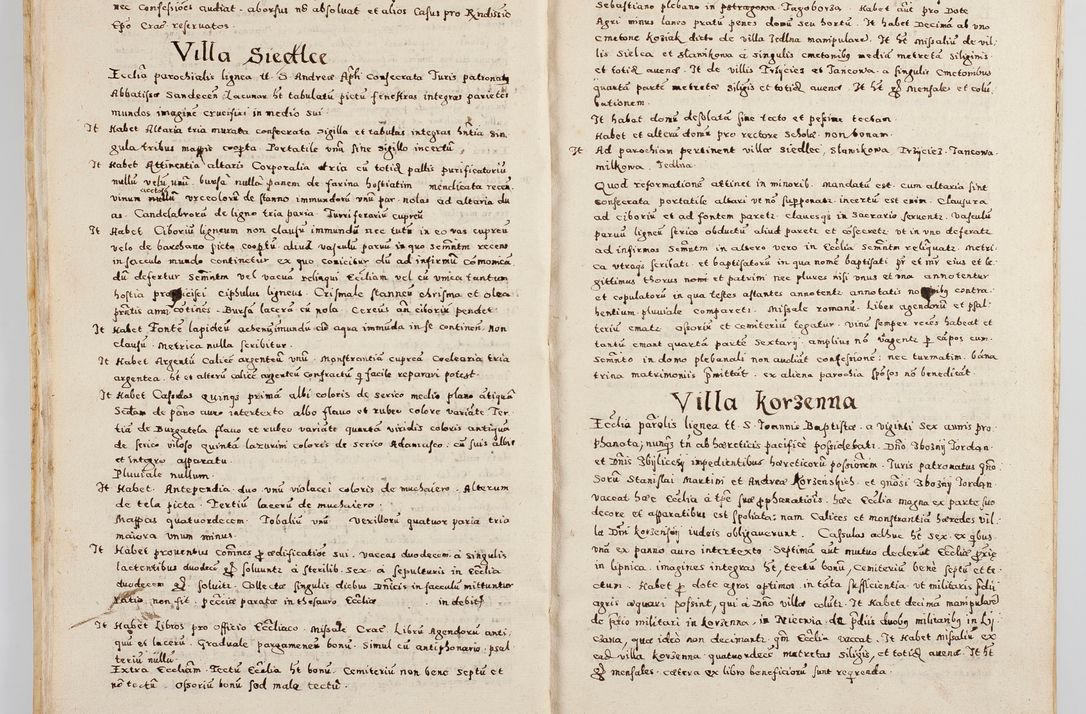 nec Confessiões audiat. aborsus nō absoluat et alios Casus pro Rndissīo
Epō Crac̄ reseruatos.
Villa Siedlce
Ecclīa parochialis lignea tt. S. Andreæ Apłi Consecrata Juris patronatꝫ
Abbatissæ Sandecen̄. Lacunar ht tabulatū pictū fenestras integras parietes
mundos imagine crucifixi in medio sui.
It Habet Altaria tria murata consecrata sigilla et tabulas integras hñtia sin,
gula tribus mappis coopta. Portatile vnū sine sigillo incertū.
It Habet Attinentia altaris Corporalia tria cū totid pallis purificatoriū
nullū velū unū. bursā nullā panem de farina hostiatim mendicata recen̄.
vinum nullū vrceolorū de stanno immundorū vnū par. nolas ad altaria du
as. Candelabrorū de ligno tria paria. Turriferariū cupreū
It Habet Ciboriū ligneum non clausū immundū nec tutū in eo vas cupreū
velo de barchano picto cooptū aliud vasculū parvū in quo Semn̄tm recens
in sacculo mundo continetur ex quo conicitur dū ad infirmū cōmonicā,
dū defertur Semn̄tm vel vacua relinqui Ecclīam vel cū vnica tantum
hostia pro ciphulus ligneus. Crismale stanneū chrisma et olea
prñtis anni cōtines. Bursa lacera cū nola. Cereus an̄ ciboriū pendet.
It Habet Fonte lapideū aheneū mundū cū aqua immūda in se continen̄. Non
clausū. Metrica nulla scribitur.
It Habet Argentū Calicē argenteū vnū. Monstrantiā cupreā Coclearia tria
argentea. ht et alterū calicē argenteū confractū q̄ facile reparari potest.
It Habet Casulas quinqꝫ primā albi coloris de serico medio plano ātiquā
Scdam de pāno auro intertexto albo flauo et rubeo colore variatē Ter,
tiā de Burgatela flauo et rubeo variatē quartā viridis coloris antiquā
de serico viloso quintā lazurini coloris de serico Adamasco. cū suis albis
et integro apparatu.
Pluuiale nullum.
It Habet. Antependia duo. vnū violacei coloris de muchaiero. Alterum
de tela picta. Tertiū lacerū de muchaiero.
Mappas quatuordecem. Tobaliū vnū. Vexillorū quatuor paria tria
maiora vnum minus.
It Habet prouentus com̄nes p̄ ædificatiōe sui. vaccas duodecem. à singulis
lactentibus duodecē gr̄ soluuntꝛ à sterilib. sex. à sepulturis in Ecclīa
duodecem gr̄. soluitꝛ. Collectæ singulis diebus Dnīcis in sacculū mittuntur
ratio non fit. pecūiæ paratæ in thesauro Ecclīæ in debitꝭ
It Habet Libros pro officio Ecclīaco. Missale Crac̄ Librū Agendorū anti,
quū et lacerū. Graduale pargameneū bonū. Simul cū antiphonario. psal
teriū nullū.
Extra Ecclīam. Tectū Ecclīa ht bonū. Cemiteriū non bene septū et
nō tectū. Ossoriū bonū sed male tectū.
Sebastiano plebano in petragona Jagoborsa. Habet aūt pro Dote
Agri minus laneo pratū penes domū seu hortū. It habet Decimā ab vno
cmetone Koźiak dicto de villa Jedlna manipularē. It ht missaliū de vil,
lis Sielca et Slanikowa à singulis cmetonibꝫ mediā metretā siliginis
et totid auenæ. It de villis Trżyciez et Jancowa. à singulis Cmetonibus
quartā partē metretæ siligis et totid auenæ. It ht gr̄ mensales et colū,
bationem.
It habat domū desolatā sine tecto et pessime tectam
Habet et alterā domū pro rectore Scholæ. non bonam.
It Ad parochiam pertinent villæ Siedlec, Slanikowa Trżyciez. Jancowa.
milkowa. Jedlna.
Quod reformationē attinet in minorib. mandatū est. cum altaria sint
consecrata portatile altari vt nō supponatꝛ. incertū est enim. Clausura
ad ciboriū et ad fontem paretꝛ. clauesqꝫ in Sacrario seruentꝛ. Vasculū
paruū ligneū serico obductū aliud paretꝛ et cōsecretꝛ vt in vno deferatꝛ
ad infirmos Semn̄tm in altero vero in Ecclīa Semn̄tm relīquatꝛ. Metri,
ca vtraqꝫ scribatꝛ. et baptisatorū in qua nomē baptisati pr̄ et mr̄ eius et le,
gittimus thorus nomē et patrini nec plures nisi vnus et vna annotentur
et copulatorū in qua testes astantes annotentꝛ annotatis nominibꝫ contra,
hentium. pluuiale comparetꝛ. Missale romanū. liber agendorū et psal
teriū ematꝛ. Ossoriū et cemiteriū tegatur. vinū semper recēs habeat et
tantū emant quartā partē Sextarij amplius nō vagentꝛ p̄ cāpos cum
Semn̄to in domo plebanali non audiāt confessionē; nec turmatim. bāna
trina matrimoniis p̄mittāt. ex aliena parochia sp̄ōsos nō benedicāt.
Villa Korzenna
Ecclīa parōlis lignea tt. S. Joannis Baptistæ. à viginti Sex annis pro,
phanata; nunqꝫ tn̄ ab hæreticis pacificè possidebatꝛ. Dño Zboźnij Jordan
et Dñis Zbijliccÿ impeditntibus hæreticorū possionem. Juris patronatus gñō
Sorū Stanislai Martini et Andreæ Korzenskich et gñosi Zboźnij Jordan.
vaceat hæc Ecclīa à tp̄e suæ pphanationis. hæc Ecclīa magna ex parte suo
decore et apparatibus est spoliata; nam Calices et monstrantiā hæredes vil,
læ Dñi Korzenscij iudeis obligauerunt. Casulas adhuc ht sex. ex qbus.
vnā ex panno auro intertexto. Septimā aūt mutuo dederūt Ecclīæ p̄riæ
in lipnica. imagines integras ht, tectū bonū, Cemiteriū benè septū et te,
ctum. Habet p̄ dote agros optimos in tāta sufficientia vt militaris p̄dij
agris æquari possint, qui à Dño villæ colūtꝛ. It Habet decimā manipularē
de p̄dio militari in Korzenna, in Niecwia, de p̄diis duobꝫ militaribꝫ in Ly,
czana, quæ idcò non decimantꝛ qm̄ Ecclīa vaccat. It Habet Missaliū ex
ead villa Korzenna quatuordecē metretas siligis, et totid auenæ. It ht
gr̄ mensales. cætera ex libro beneficiorū sunt reqrenda.